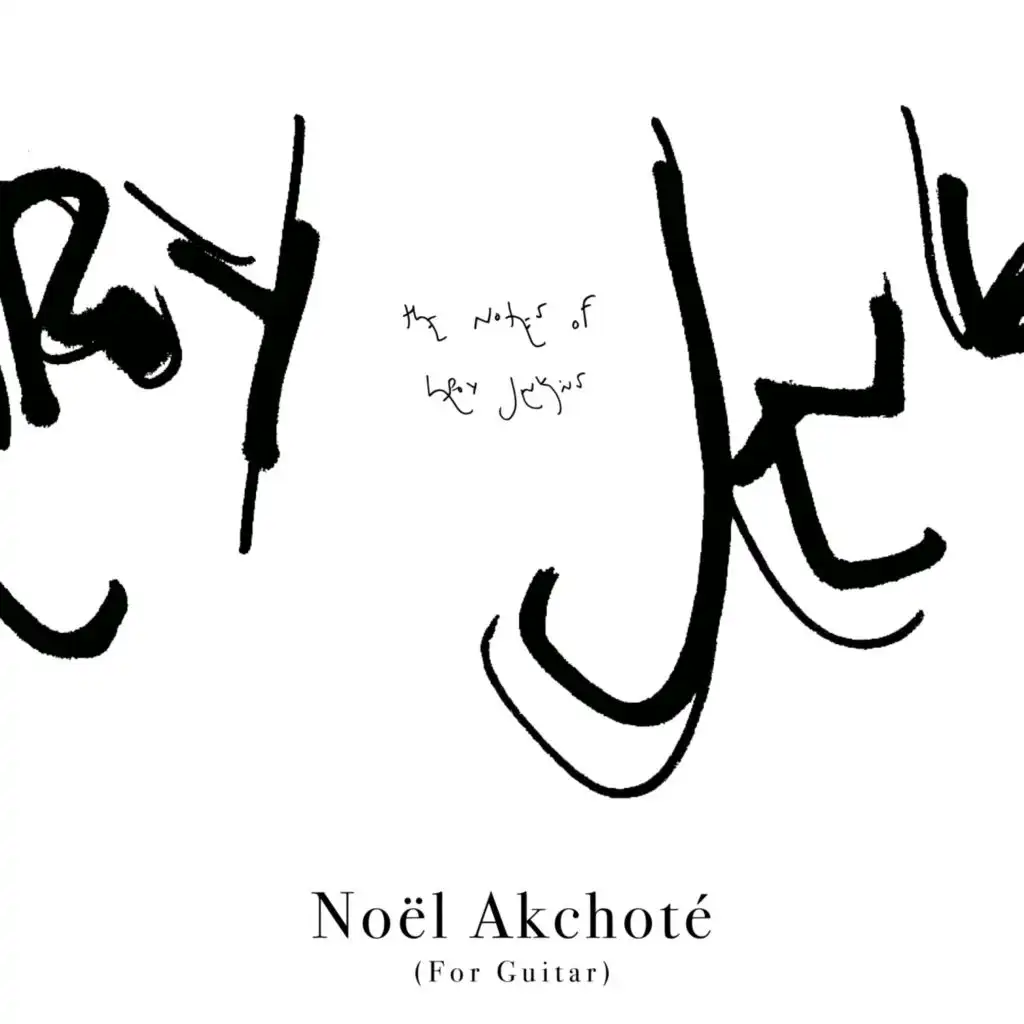 ROY JE
the Notes of
Leroy Jenkins
Noël Akchoté
(For Guitar)